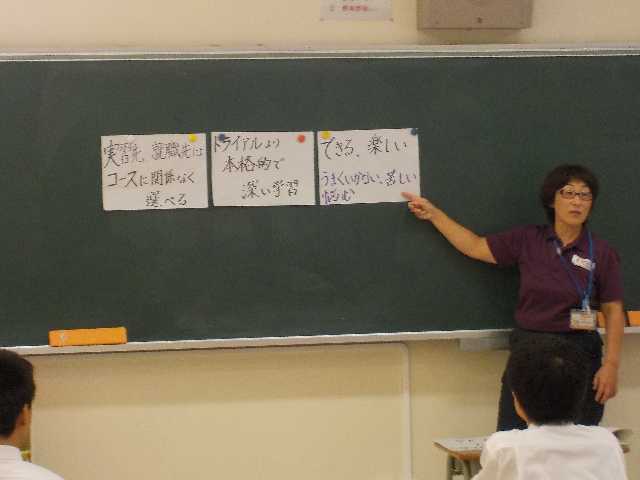 実習先、就職先は
コースに関係なく
選べる
トライアルより
本格的で
深い学習
できる、楽しい
うまくいかない、苦しい
悩む